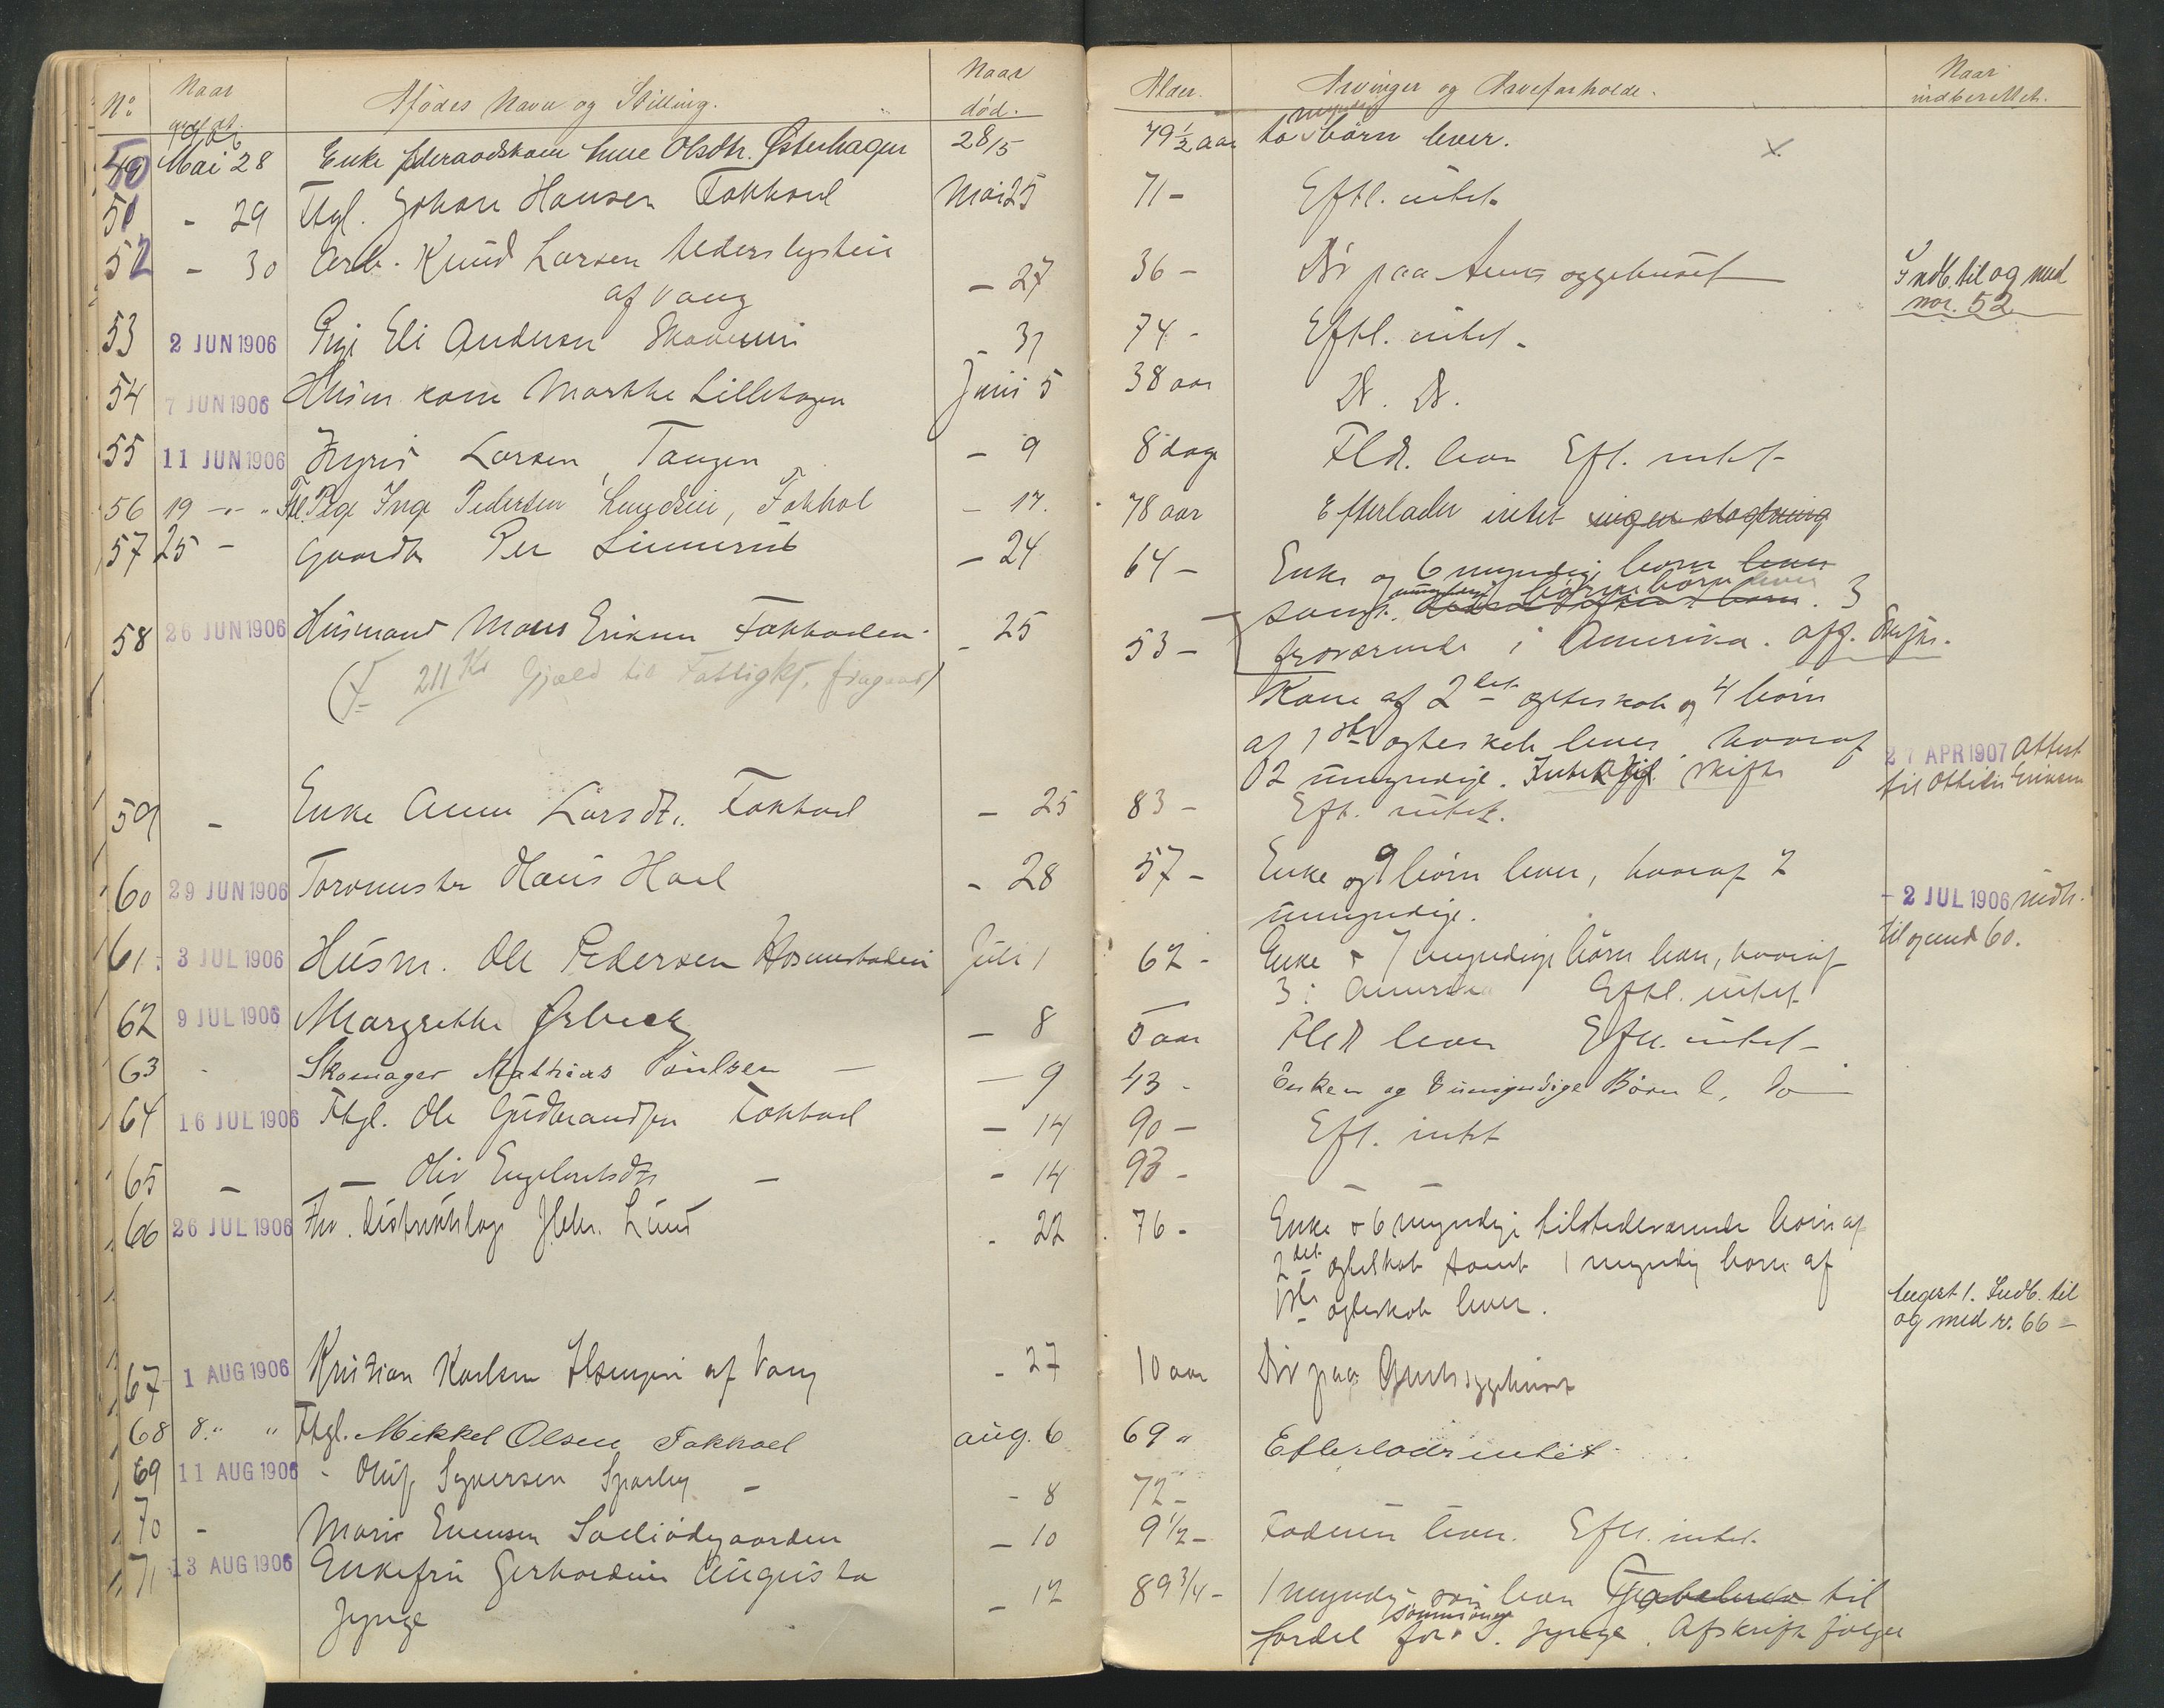 No Naar Afdødes Navn og Stilling. Naar død. Alder. Arvinger og Arveforholde. Naar indberettet.
50 Mai 28 Enke føderaadskone Olsdtr. Østerhagen 28/5 79 1/2 aar to myndige børn lever. X
51 - 29 Ftgl. Johan Hansen Fokhoel Mai 25 71 - Eftl. intet.
52 - 30 Arb. Knud Larsen - 27 36 - Dør paa
af Vang
Indb. til og med
nor. 52
53 2 JUN 1906 Pige Eli Andersen - 31 74 - Eftl. intet -
54 7 JUN 1906 Husm. kone Marthe Lillehagen Juni 5 38 aar D. D.
55 11 JUN 1906 Larsen, Tangen - 9 8 dage Fldr. lever Eft. intet -
56 19 - " Ftl. Pige Inge Pedersen, Fokhol - 17. 78 aar Efterlader intet
57 25 - Gaardbr Per Linnerud - 24 64 - Enke og 6 myndige børn lever
samt myndige børnebørn lever. 3
58 26 JUN 1906 Husmand Mons Eriksen Fokhoelen - 25 53 - fraværende i Amerika.
(211 Kr Gjæld til Fattigk.
Kone af 2det egteskab og 4 børn
af 1ste egteskab lever, hvoraf
2 umyndige. skifte
27 APR 1907 Attest
til Eriksen
59 - Enke Anne Larsdt. Fokhoel - 25 83 - Eft. intet.
60 29 JUN 1906 Torvmester Hans Hoel - 28 57 - Enke og 9 børn lever, hvoraf 2
umyndige.
- 2 JUL 1906 indb.
til og med 60.
61. 3 JUL 1906 Husm. Ole Pedersen Juli 1 62 - Enke + 7 myndige børn lever, hvoraf
3 i Amerika Eftl. intet
62 9 JUL 1906 Margrethe Ørbeck - 8 5 aar Fldr lever Eftl. intet -
63 - Skomager Mathias Paulsen - - 9 43 - Enken og umyndige Børn l. do
64 16 JUL 1906 Ftgl. Ole Gudbrandsen Fokhoel - 14 90 - Eft. intet
65 - - Oliv Engebretsdtr - - 14 93 - - -
66 26 JUL 1906 Fhv. distriktslæge Lund - 22 76 - Enke + 6 myndige tilstedeværende børn af
2det egteskab samt 1 myndig barn af
1ste egteskab lever.
August 1. Indb. til
og med nr. 66 -
67 1 AUG 1906 Kristian Karlsen af Vang - 27 10 aar Dør paa
68 8. " " Ftgl. Mikkel Olsen Fokhoel aug. 6 69 " Efterlader intet
69 11 AUG 1906 - Oluf Syversen Sparby - - 8 72 -
70 - Marie Evensen - 10 9 1/2 - Faderen lever. Eftl. intet.
71 13 AUG 1906 Enkefru Gerhardine Augusta - 12 89 3/4 - 1 myndig søn lever til
Jynge fordel for S. Jynge. Afskrift følger